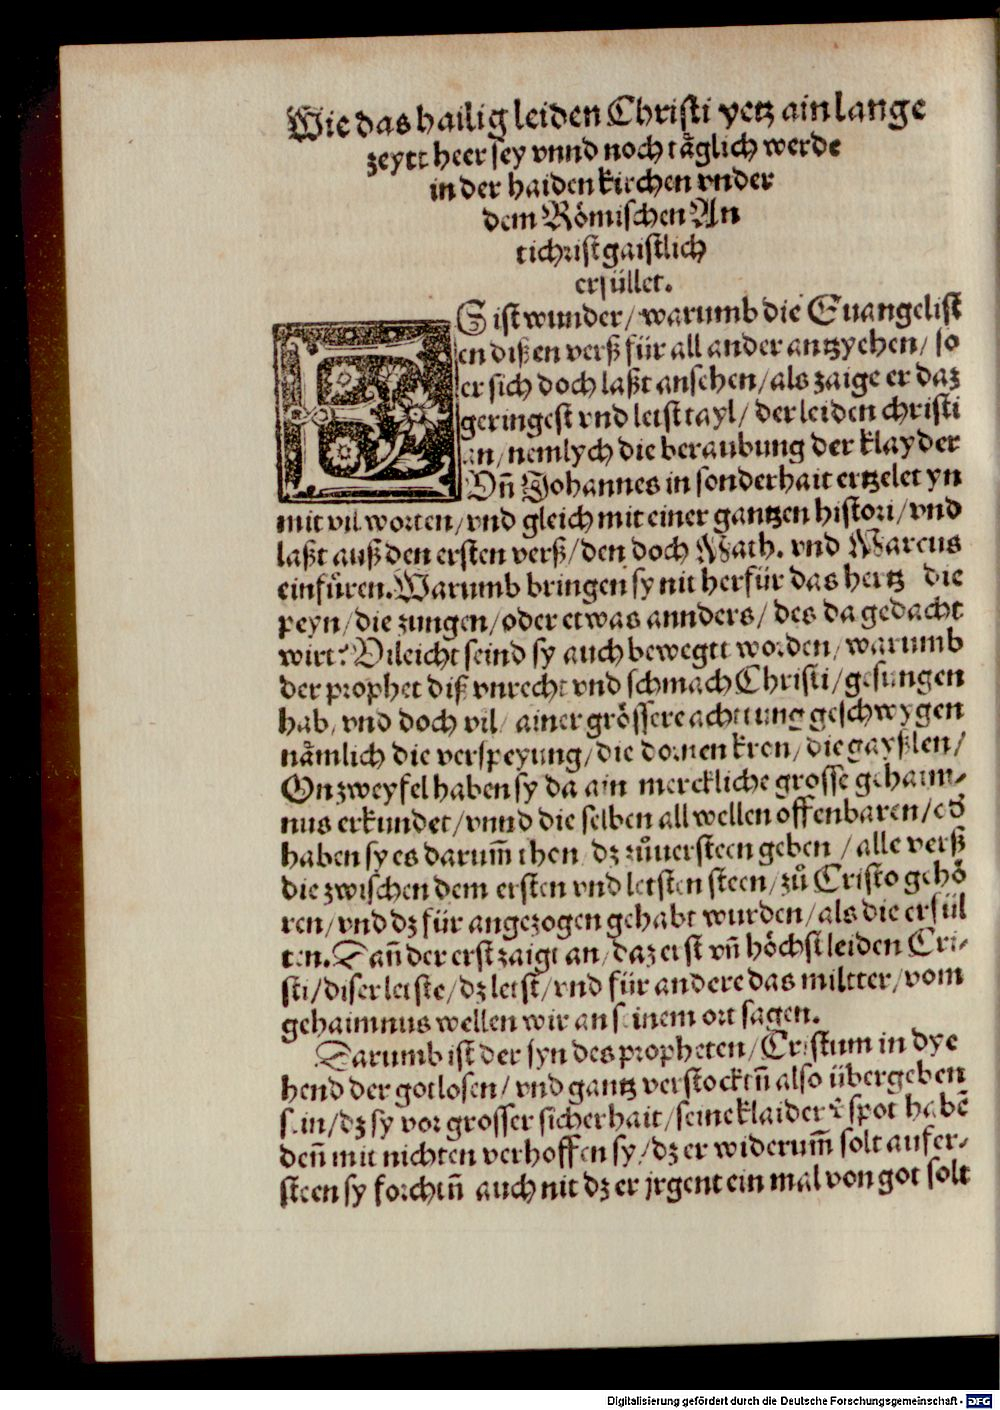 Wie das hailig leiden Christi yetz ain lange
zeytt heer sey vnnd noch täglich werde
in der haiden kirchen vnder
dem Römischen An
tichrist gaistlich
erfüllet.
ES ist wunder / warumb die Euangelist
en dißen verß für all ander antzyehen / so
er sich doch laßt ansehen / als zaige er daz
geringest vnd leist tayl / der leiden christi
an / nemlych die beraubung der klayder
Vñ Johannes in sonderhait ertzelet yn
mit vil worten / vnd gleich mit einer gantzen histori / vnd
laßt auß den ersten verß / den doch Math. vnd Marcus
einfůren. Warumb bringen sy nit herfür das hertz die
peyn / die zungen / oder etwas annders / des da gedacht
wirt? Vileicht seind sy auch bewegtt worden / warumb
der prophet diß vnrecht vnd schmach Christi / gesungen
hab / vnd doch vil / ainer grössere achttung geschwygen
nämlich die verspeyung / die dornen kron / die gayßlen /
On zweyfel haben sy da ain merckliche grosse gehaim-
nus erkundet / vnnd die selben all wellen offenbaren / od̃
haben sy es darum̃ thon / dz zůuersteen geben / alle verß
die zwischen dem ersten vnd letsten steen / zů Cristo gehö
ren / vnd dz für angezogen gehabt wurden / als die erfül
ten. Dañ der erst zaigt an / daz erst vñ höchst leiden Cri-
sti / diser letste / dz letst / vnd für andere das miltter / vom
gehaimnus wellen wir an seinem ort sagen.
Darumb ist der syn des propheten / Cristum in dye
hend der gotlosen / vnd gantz verstocktñ also übergeben
sein / dz sy vor grosser sicherhait / seine klaider ĩ spot habẽ
deñ mit nichten verhoffen sy / dz er widerum̃ solt aufer-
steen sy forchtñ auch nit dz er jrgent ein mal von got solt
Digitalisierung gefördert durch die Deutsche Forschungsgemeinschaft - DFG